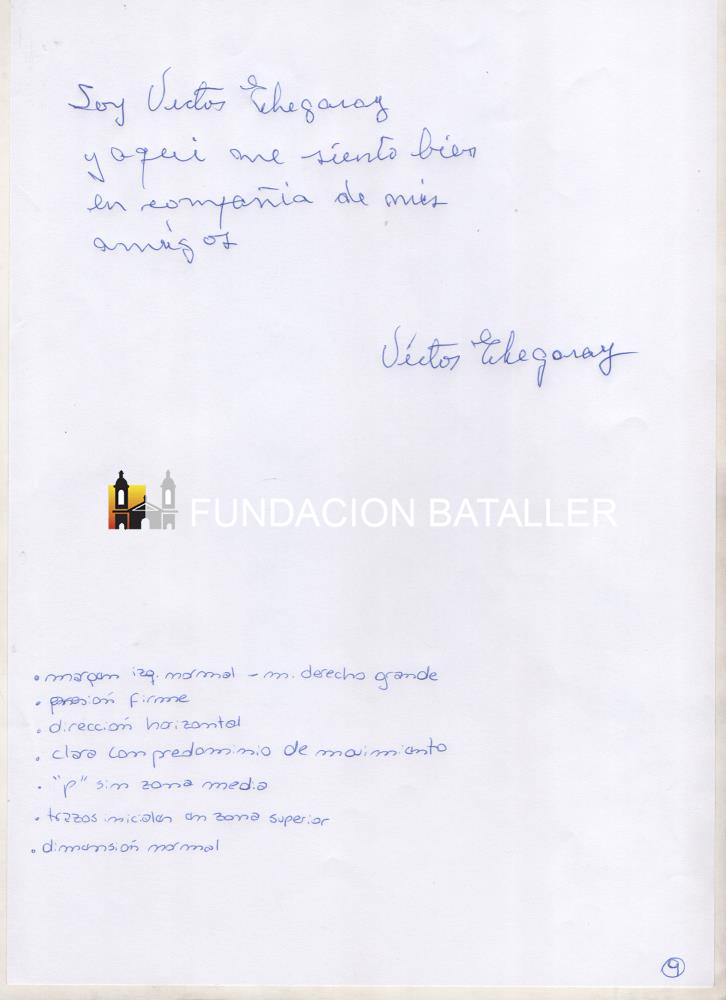 Soy Victor Echegaray
y aqui me siento bien
en compañia de mis
amigos
Victor Echegaray
FUNDACION BATALLER
• margen izq. normal - m. derecho grande
• presión firme
• dirección horizontal
• clara con predominio de movimiento
• "p" sin zona media
• trazos iniciales en zona superior
• dimensión normal
9